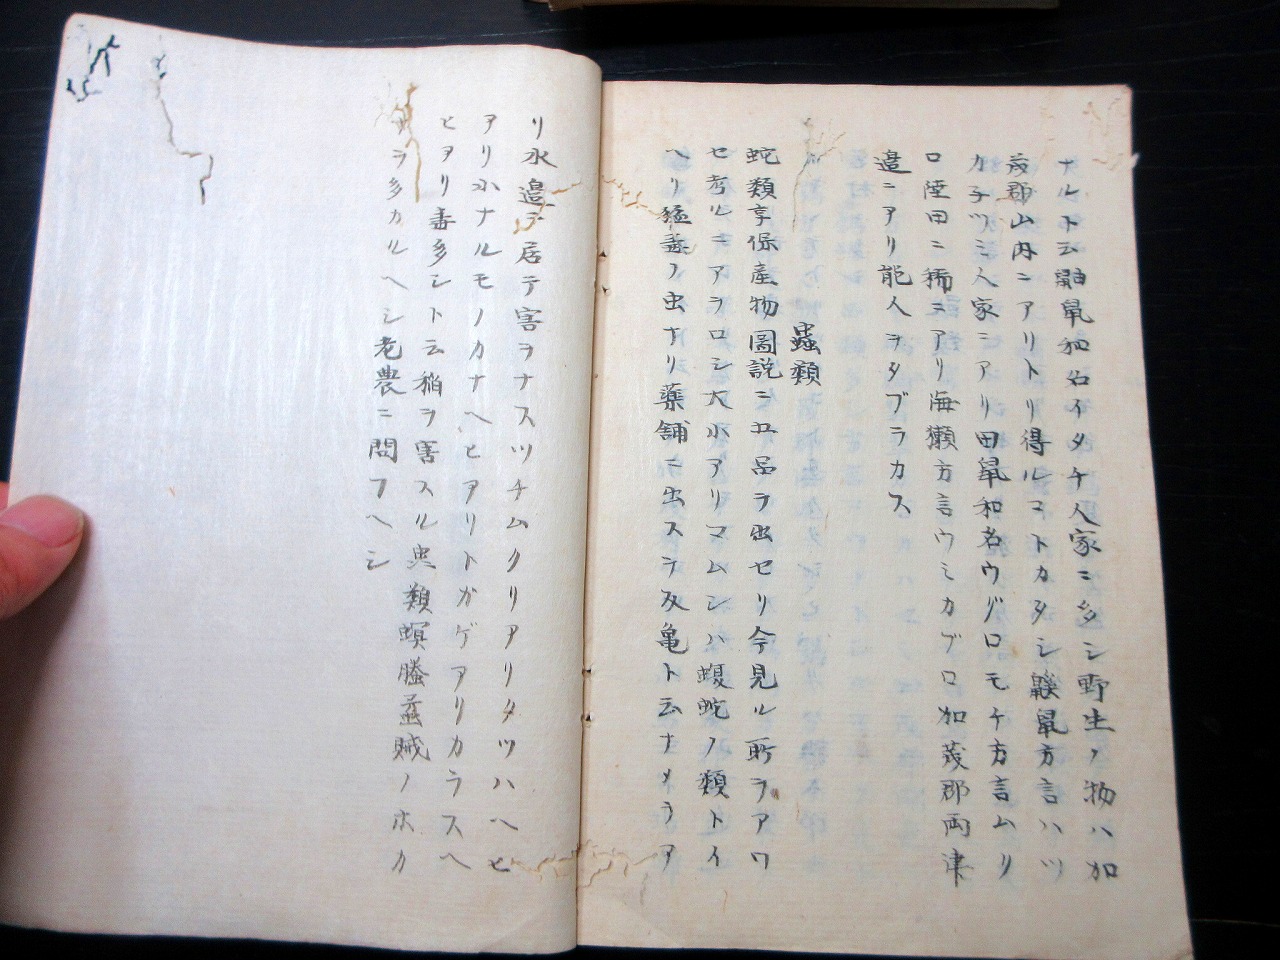 ナルト云鼬鼠和名イタチ人家ニ多シ野生ノ物ハ加
茂郡山内ニアリトリ得ルコトカタシ鼷鼠方言ハツ
カ子ツミ人家ニアリ田鼠和名ウグロモチ方言ムリ
ロ陸田ニ稀ニアリ海獺方言ウミカブロ加茂郡両津
邉ニアリ能人ヲタブラカス
蟲類
蛇類享保産物圖説ニ五品ヲ出セリ今見ル所ヲアワ
セ考ルニアヲロシ大小アリマムシハ蝮蛇ノ類トイ
ヘリ猛毒ノ虫ナリ薬舗ニ出スヲ反亀ト云ナメラア
リ水邉ニ居テ害ヲナスツチムクリアリタツハヘヒ
アリ小ナルモノカナヘヒアリトガゲアリカラスヘ
ヒアリ毒多シト云稲ヲ害スル虫類螟螣蟊賊ノホカ
ラ多カルヘシ老農ニ問フヘシ